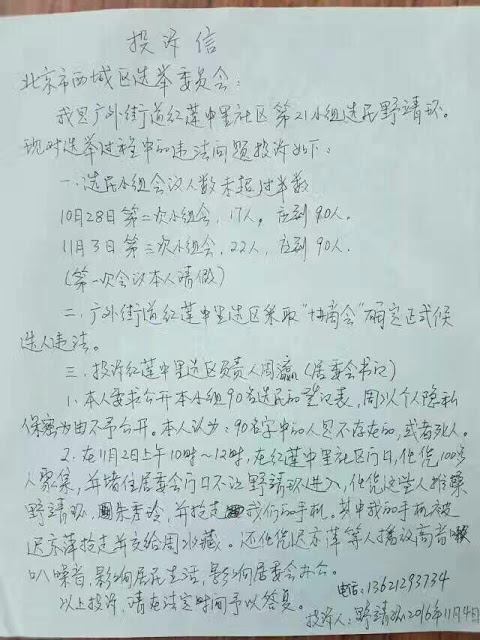 投诉信
北京市西城区选举委员会:
我是广外街道红莲中里社区第21小组选民野靖环。
现对选举过程中的违法问题投诉如下:
一.选民小组会议人数未超过半数
10月28日第二次小组会,17人,应到90人.
11月3日第三次小组会,22人,应到90人.
(第一次会议本人请假)
二.广外街道红莲中里选区采取“协商会”确定正式候
选人违法。
三.投诉红莲中里选区负责人周瀛(居委会书记)
1.本人要求公开本小组90名选民的登记表,周以个人隐私
保密为由不予公开。本人认为:90名字中的人是不存在的,或者死人。
2.在11月2日上午10时~12时,在红莲中里社区门口,他凭100多
人聚集,并堵住居委会门口不让野靖环进入,他凭这些人推
野靖环 朱秀玲,并抢走我们的手机。其中我的手机被
迟京萍抢走并交给周收藏。还他凭迟京萍等人播放高音喇
叭噪音,影响居民生活,影响居委会办公。
以上投诉,请在法定时间予以答复。
电话:13621293734
投诉人:野靖环2016年11月4日